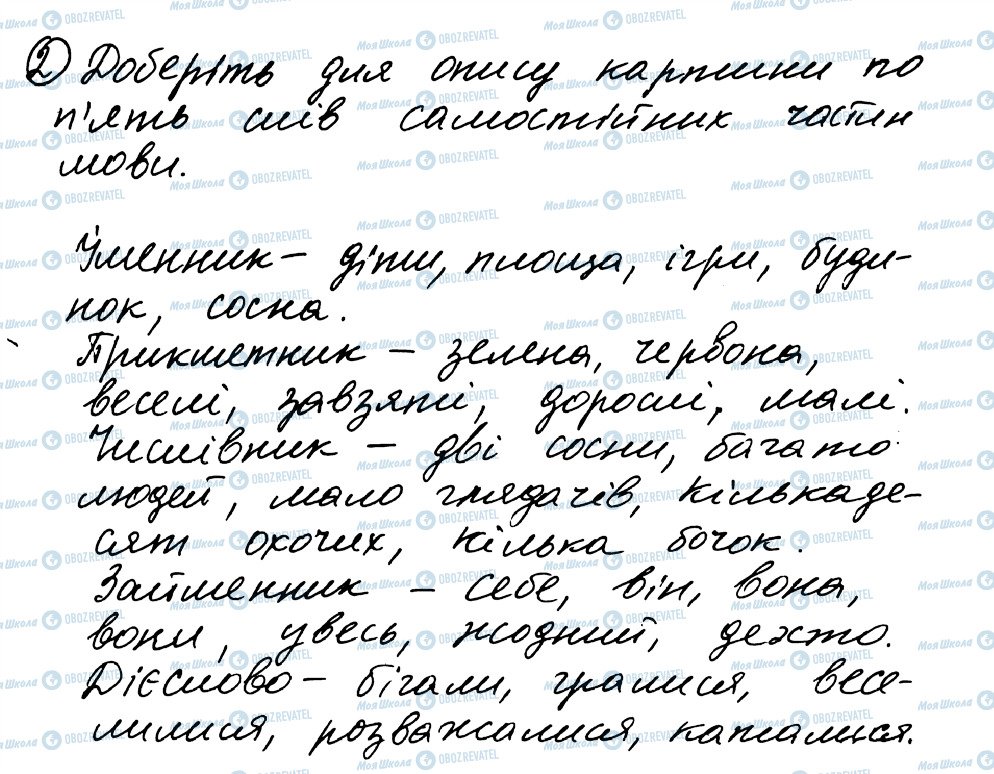 2) Доберіть для опису картини по
п'ять слів самостійних частин
мови.
Іменник – діти, площа, ігри, буди-
нок, сосна.
Прикметник – зелена, червона,
веселі, завзяті, дорослі, малі.
Числівник – дві сосни, багато
людей, мало глядачів, кількаде-
сят охочих, кілька бочок.
Займенник – себе, він, вона,
вони, увесь, жодний, дехто.
Дієслово – бігали, гралися, весе-
лилися, розважалися, каталися.